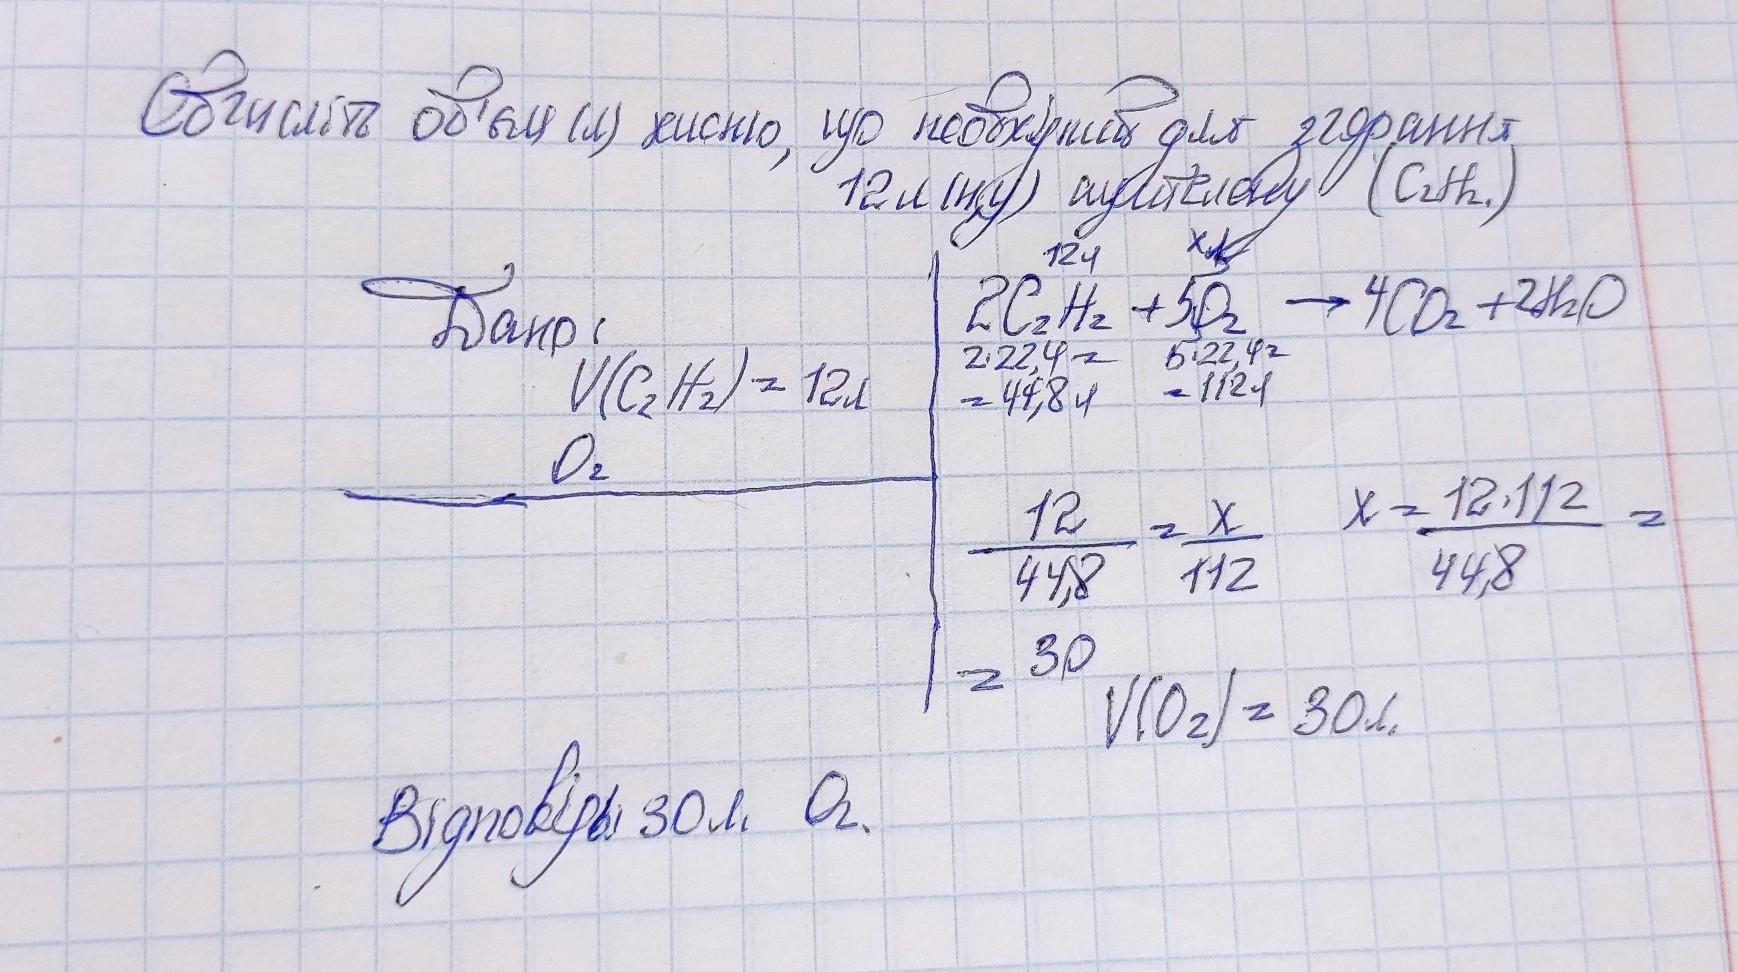 Обчисліть об'єм (л) кисню, що необхідний для згорання
12л (н,у) ацителену (C₂H₂.)
Дано:
V(C₂H₂) = 12л
O₂
12л хл
2C₂H₂ + 5O₂ → 4CO₂ + 2H₂O
2·22,4= 5·22,4=
=44,8л =112л
12/44,8 = x/112 x = 12·112/44,8 =
= 30
V(O₂) = 30л.
Відповідь: 30л. O₂.